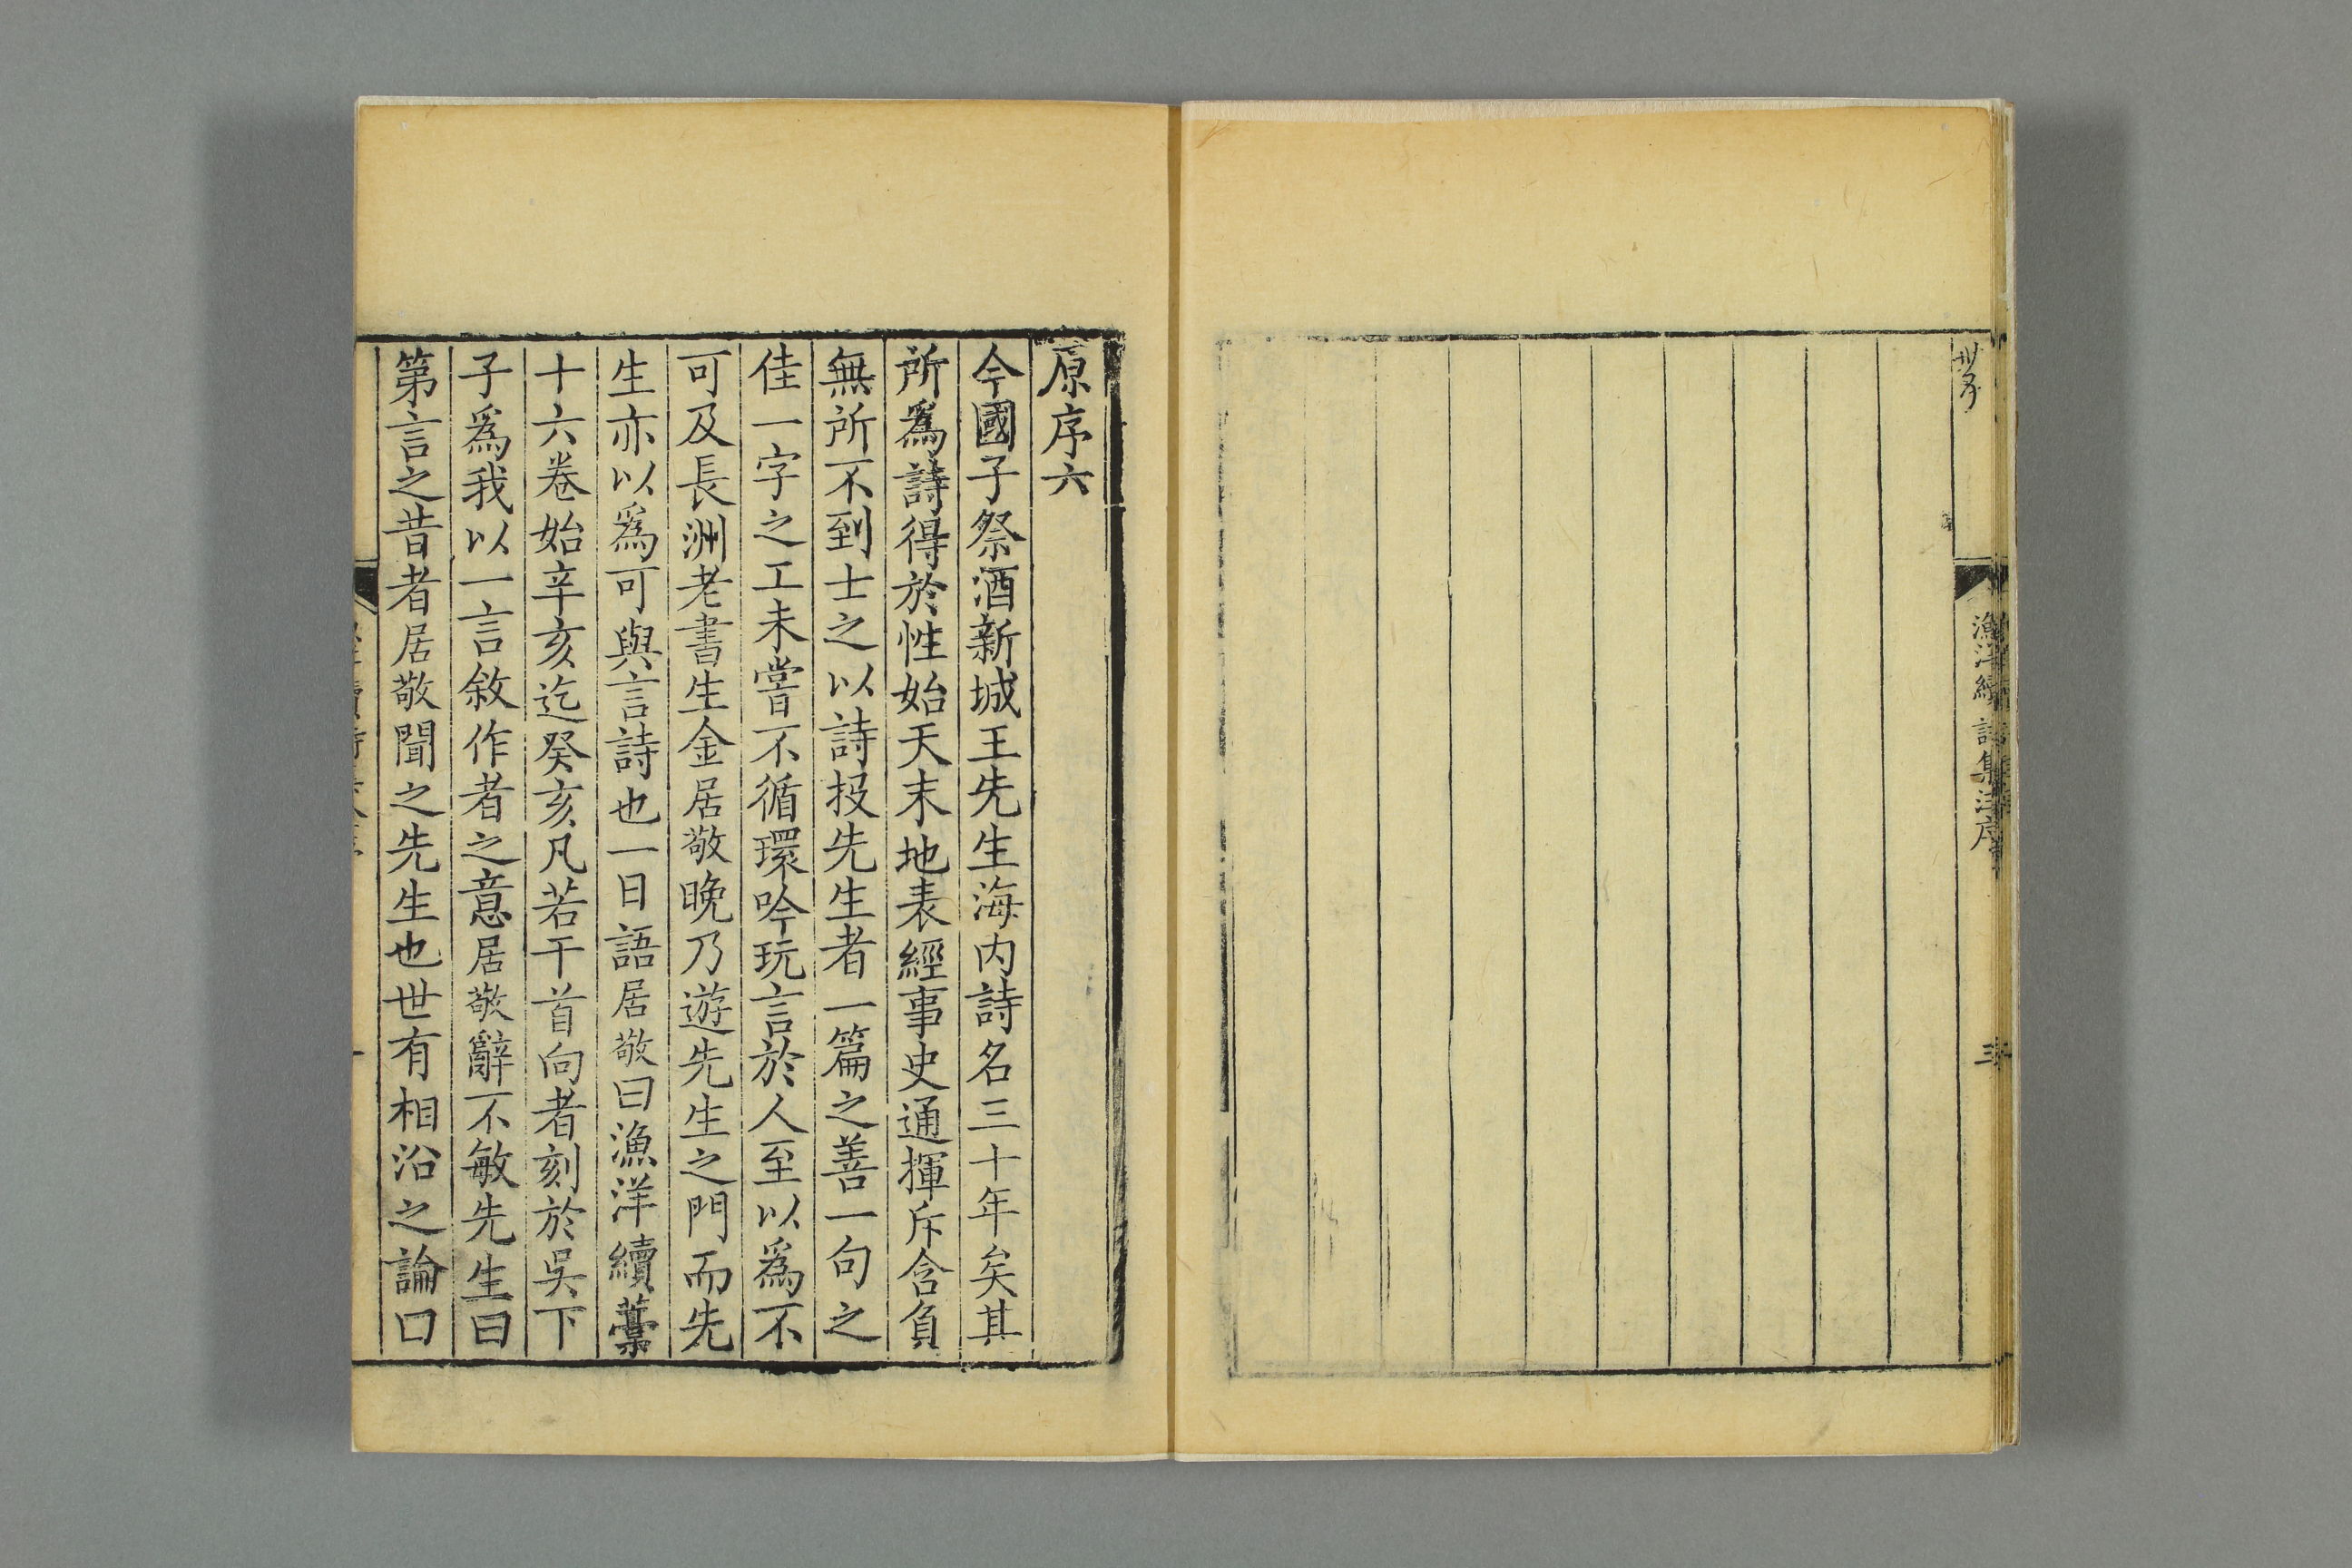 漁洋續詩集注序
三
原序六
今國子祭酒新城王先生海内詩名三十年矣其
所爲詩得於性始天末地表經事史通揮斥含負
無所不到士之以詩投先生者一篇之善一句之
佳一字之工未嘗不循環吟玩言於人至以爲不
可及長洲老書生金居敬晚乃遊先生之門而先
生亦以爲可與言詩也一日語居敬曰漁洋續藁
十六卷始辛亥迄癸亥凡若干首向者刻於吳下
子爲我以一言敘作者之意居敬辭不敏先生曰
第言之昔者居敬聞之先生也世有相沿之論曰